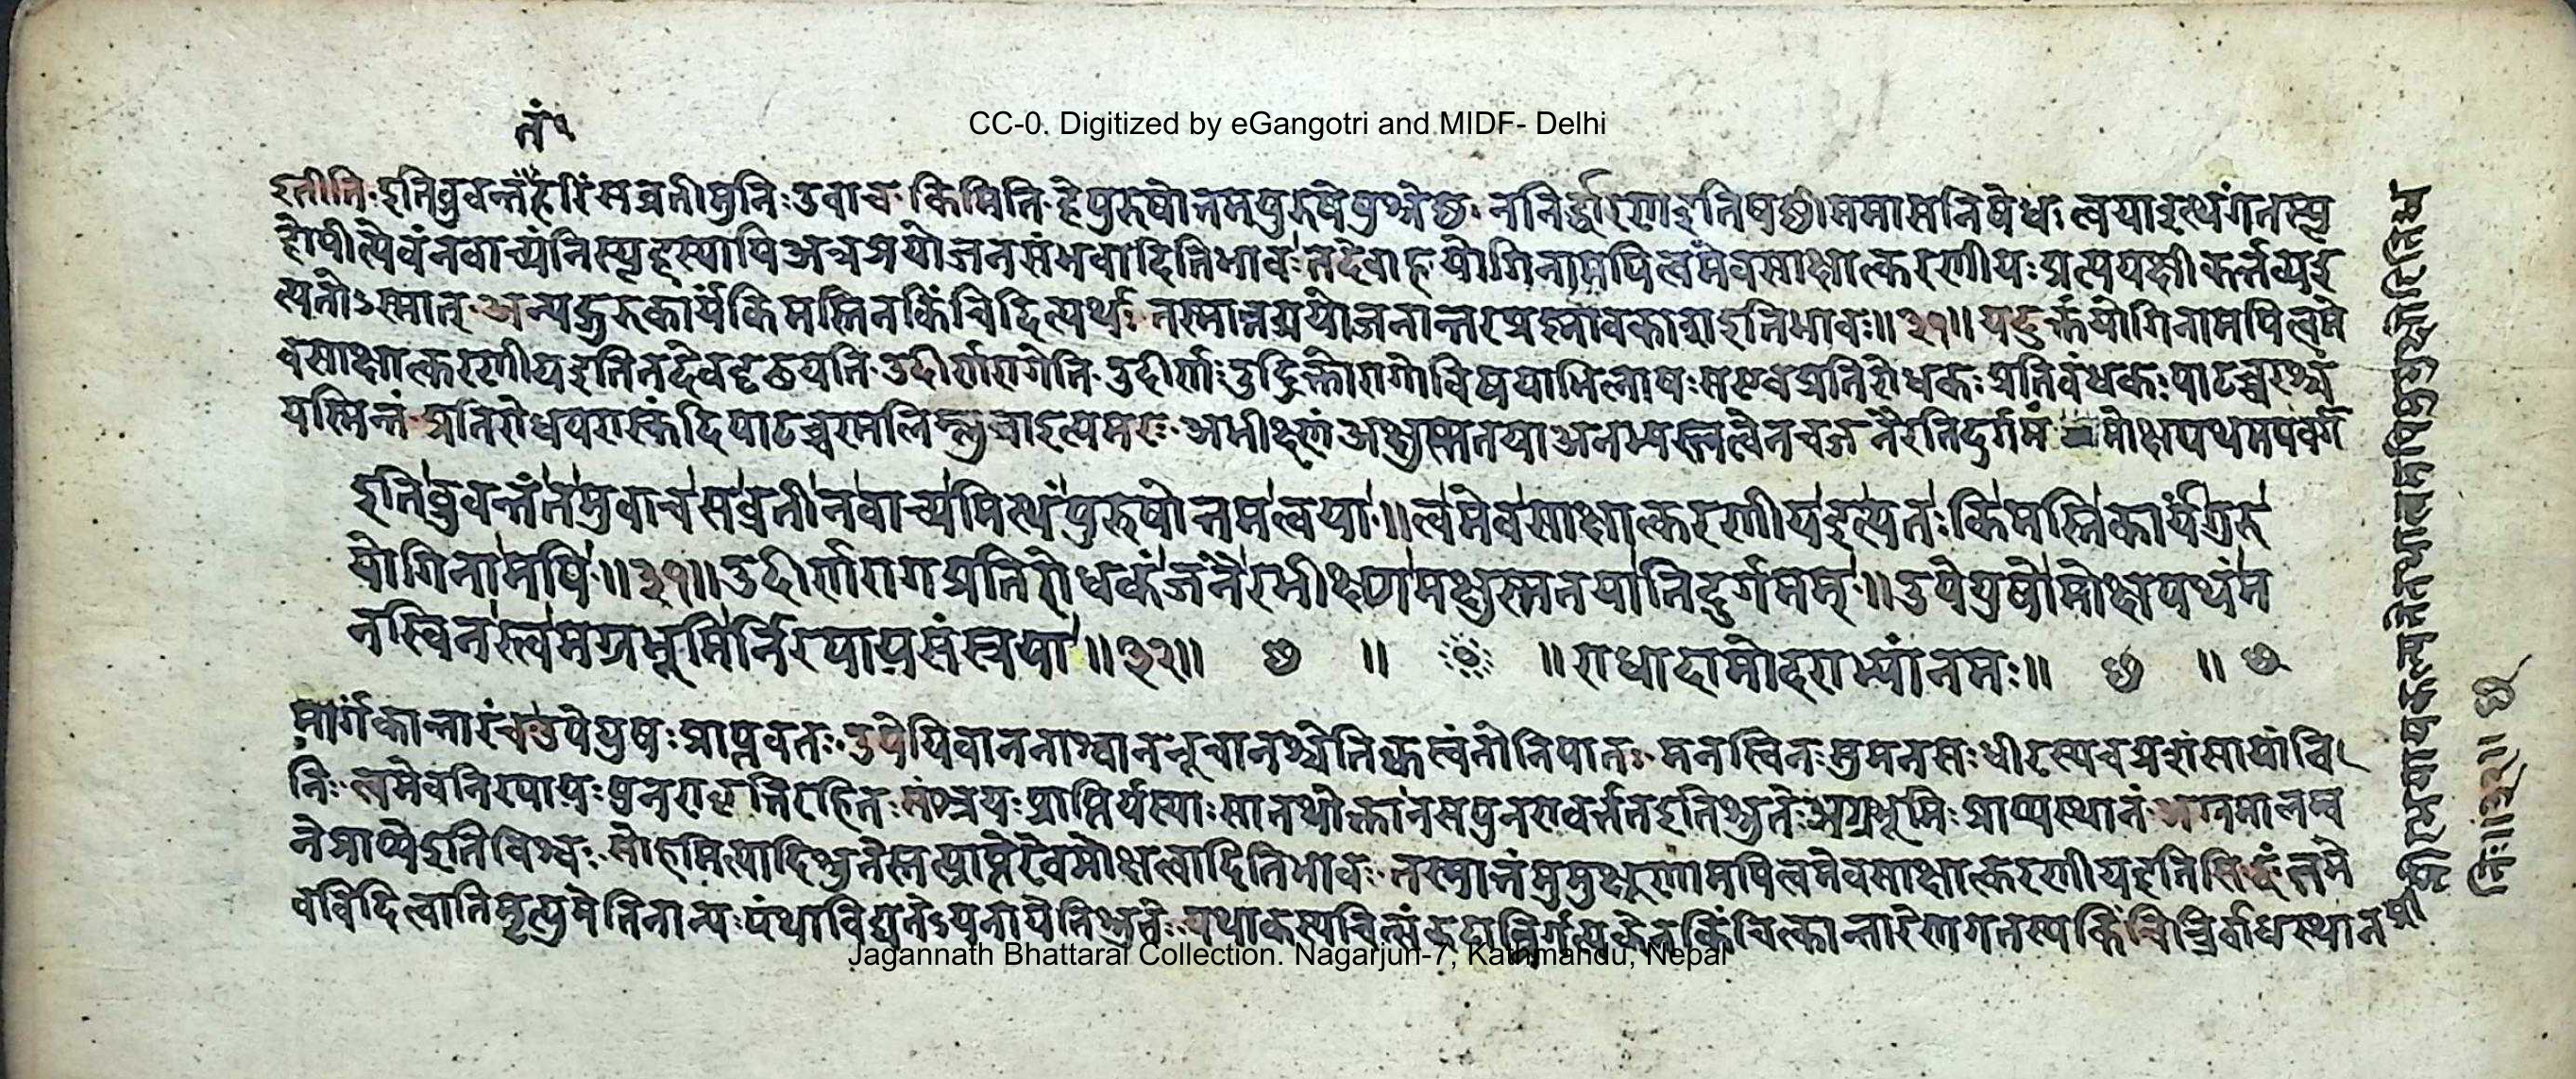 तं १
CC-0. Digitized by eGangotri and MIDF- Delhi
इतीति · इतिब्रुवन्तंहरिंसव्रतीमुनिः उवाच किमिति हेपुरुषोत्तमपुरुषेषुश्रेष्ठ ननिर्द्धारणइतिषष्ठीसमासनिषेधः त्वयाइत्थंगतस्पृ
होपीत्येवंनवाच्यंनिस्पृहस्यापिअत्रप्रयोजनसंभवादितिभावः तदेवाह योगिनामपित्वमेवसाक्षात्करणीयः प्रत्यक्षीकर्त्तव्यइ
त्यतोऽस्मात् अन्यद्गुरुकार्यंकिमस्तिनकिंचिदित्यर्थः तस्मान्नप्रयोजनान्तरप्रश्नावकाशइतिभावः ॥ ३१ ॥ यदुक्तंयोगिनामपित्वमे
वसाक्षात्करणीयइतितदेवदृढयति उदीर्णरागेति उदीर्णः उद्रिक्तोरागोविषयाभिलाषः सएवप्रतिरोधकः प्रतिबंधकः पाटच्चरश्च
यस्मिन्तं प्रतिरोधिपरास्कंदिपाटच्चरमलिम्लुचाइत्यमरः अभीक्ष्णं अक्षुण्णतयाअनभ्यस्तत्वेनचजनैरतिदुर्गमं मोक्षपथमपवर्ग
इतिब्रुवन्तंतमुवाचसव्रतीनवाच्यमित्थंपुरुषोत्तमत्वया ॥ त्वमेवसाक्षात्करणीयइत्यतः किमस्तिकार्यंगुरु
योगिनामपि ॥ ३१ ॥ उदीर्णरागप्रतिरोधकंजनैरभीक्ष्णमक्षुण्णतयातिदुर्गमम् ॥ उपेयुषोमोक्षपथंम
नस्विनस्त्वमग्रभूमिर्निरपायसंश्रया ॥ ३२ ॥ ॥ ॥ राधादामोदराभ्यांनमः ॥ ॥
मार्गंकान्तारंचउपेयुषः प्राप्तवतः उपेयिवाननाश्वाननूचानश्चेतिक्वस्वंतोनिपातः मनस्विनः सुमनसः धीरस्यचप्रशंसायांवि
निः त्वमेवनिरपायः पुनरावृत्तिरहितः संश्रयः प्राप्तिर्यस्याः सातथोक्तानसपुनरावर्त्ततइतिश्रुतेः अग्रभूमिः प्राप्यस्थानं अग्रमालम्ब
नेप्राप्येइतिविश्वः सोहमित्यादिश्रुतेस्तत्प्राप्तेरेवमोक्षत्वादितिभावः तस्मात्तंमुमुक्षूणामपित्वमेवसाक्षात्करणीयइतिसिद्धं तमे
वविदित्वातिमृत्युमेतिनान्यः पंथाविद्यतेऽयनायेतिश्रुतेः यथाकस्यचित्संकटान्निर्गत्यकेनकिंचित्कान्तारेणगतस्यकिंचिन्निर्बाधस्थान
Jagannath Bhattarai Collection. Nagarjun-7, Kathmandu, Nepal
॥ ३२ ॥